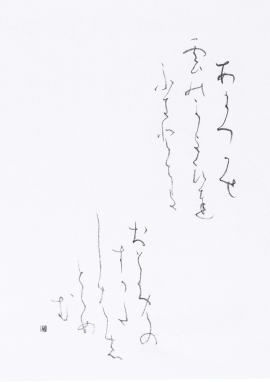 あまつかせ
雲のかよひち
ふきとちよ
おとめの
すかた
しはし
とゝめ
む